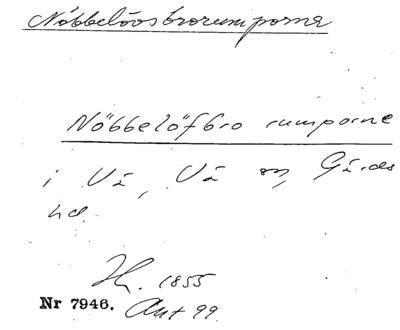 Nöbbelövsbrorumporna
Nöbbelöfbro rumporne
i Vä, Vä sn, Gärds
hd.
1855
Nr 7946. Ant 99